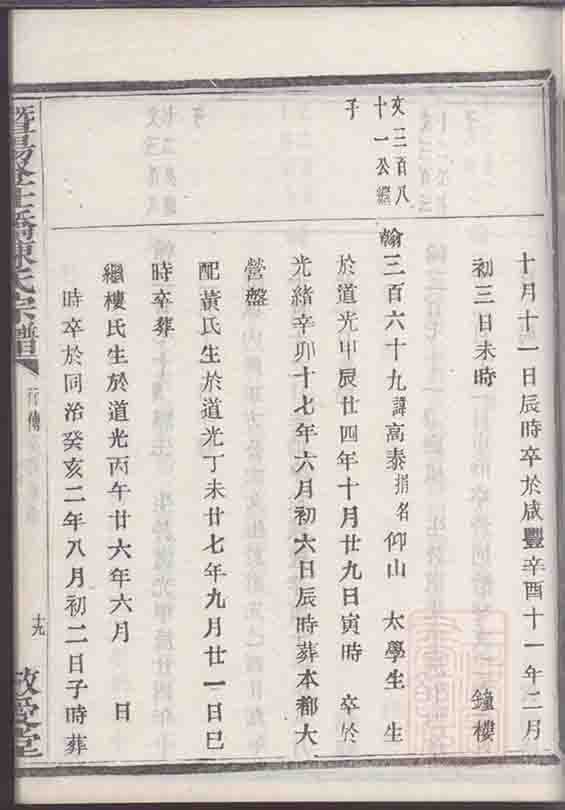 十月十一日辰時卒於咸豐辛酉十一年二月
初三日未時 鐘樓
文三百八
十一公繼
子
翰三百六十九諱高泰捐名仰山 太學生 生
於道光甲辰廿四年十月廿九日寅時 卒於
光緒辛卯十七年六月初六日辰時葬本都大
營盤
配黃氏生於道光丁未廿七年九月廿一日巳
時卒葬
繼樓氏生於道光丙午廿六年六月 日
時卒於同治癸亥二年八月初二日子時葬
陳氏宗譜
行傳
十九
敬愛堂